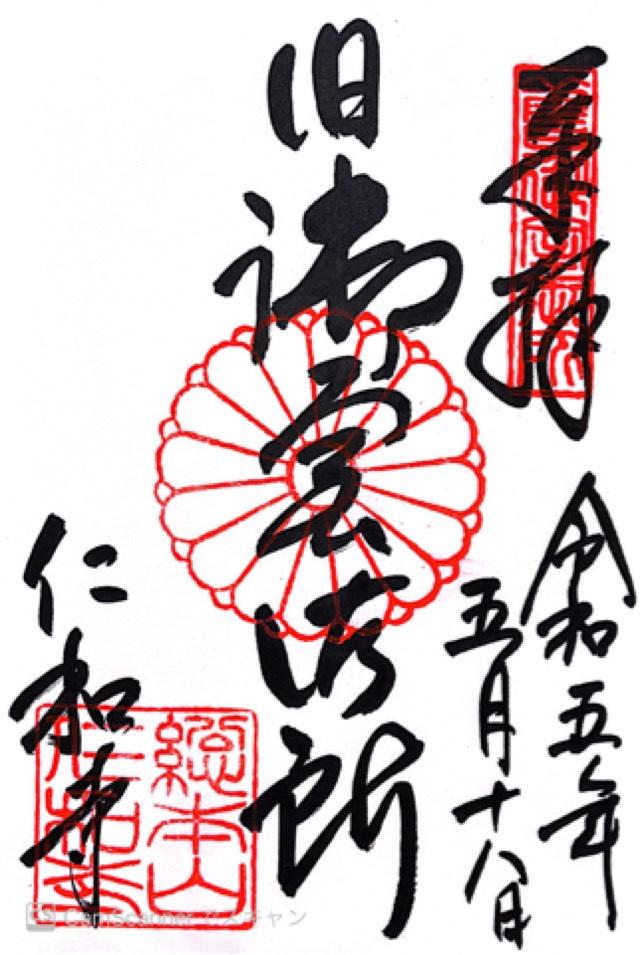 奉拝
令和五年
五月十八日
旧御室御所
仁和寺
總本山
仁和寺
CS CamScanner でスキャン